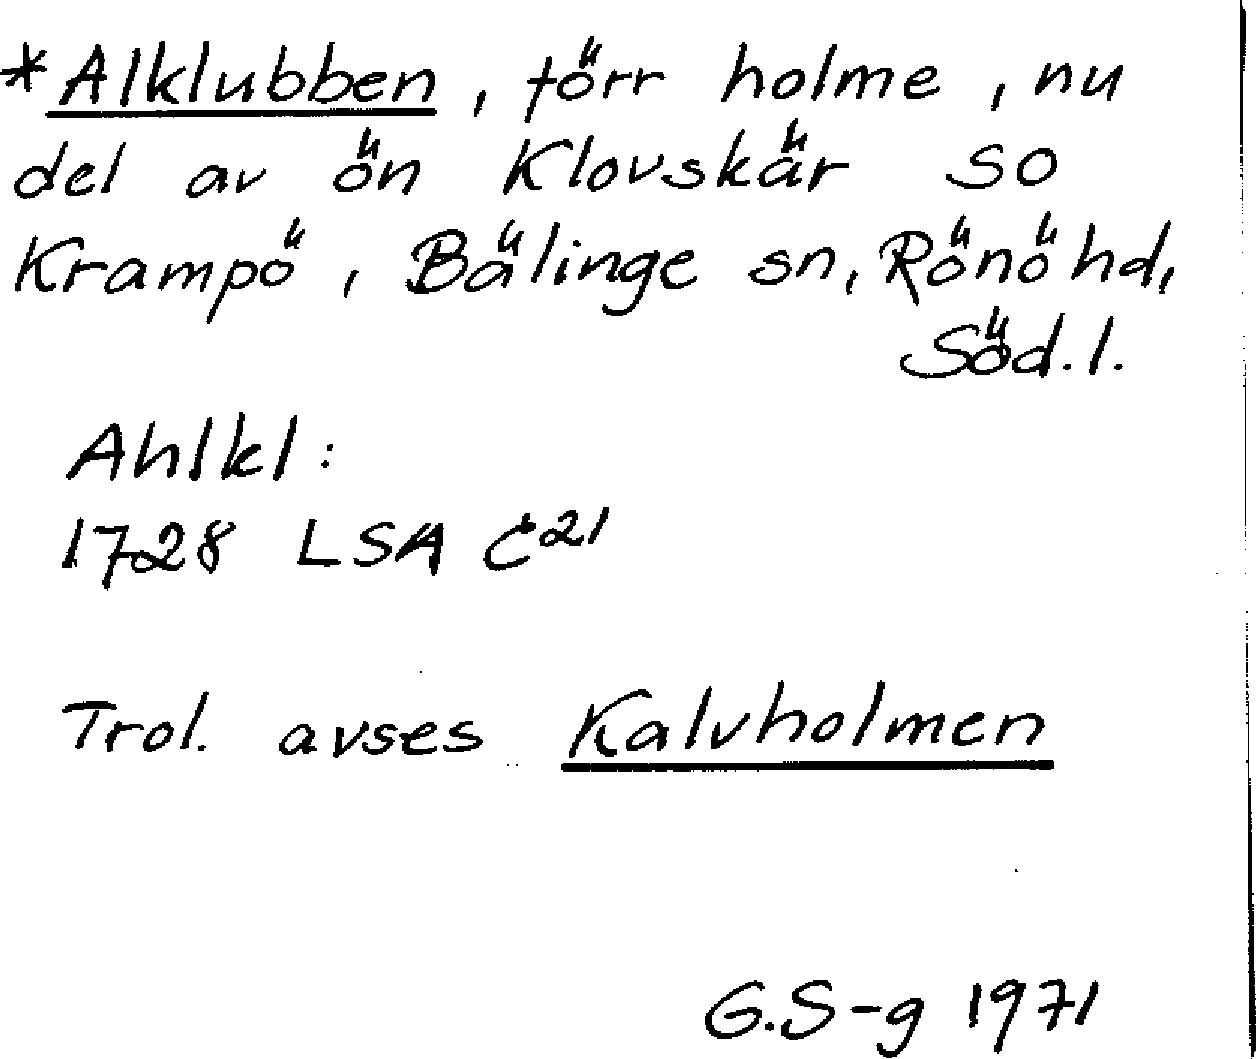 *Alklubben, förr holme, nu
del av ön Klovskär SO
Krampö, Bälinge sn, Rönö hd,
Söd.l.
Ahlkl:
1728 LSA C21
Trol. avses Kalvholmen
G.S-g 1971